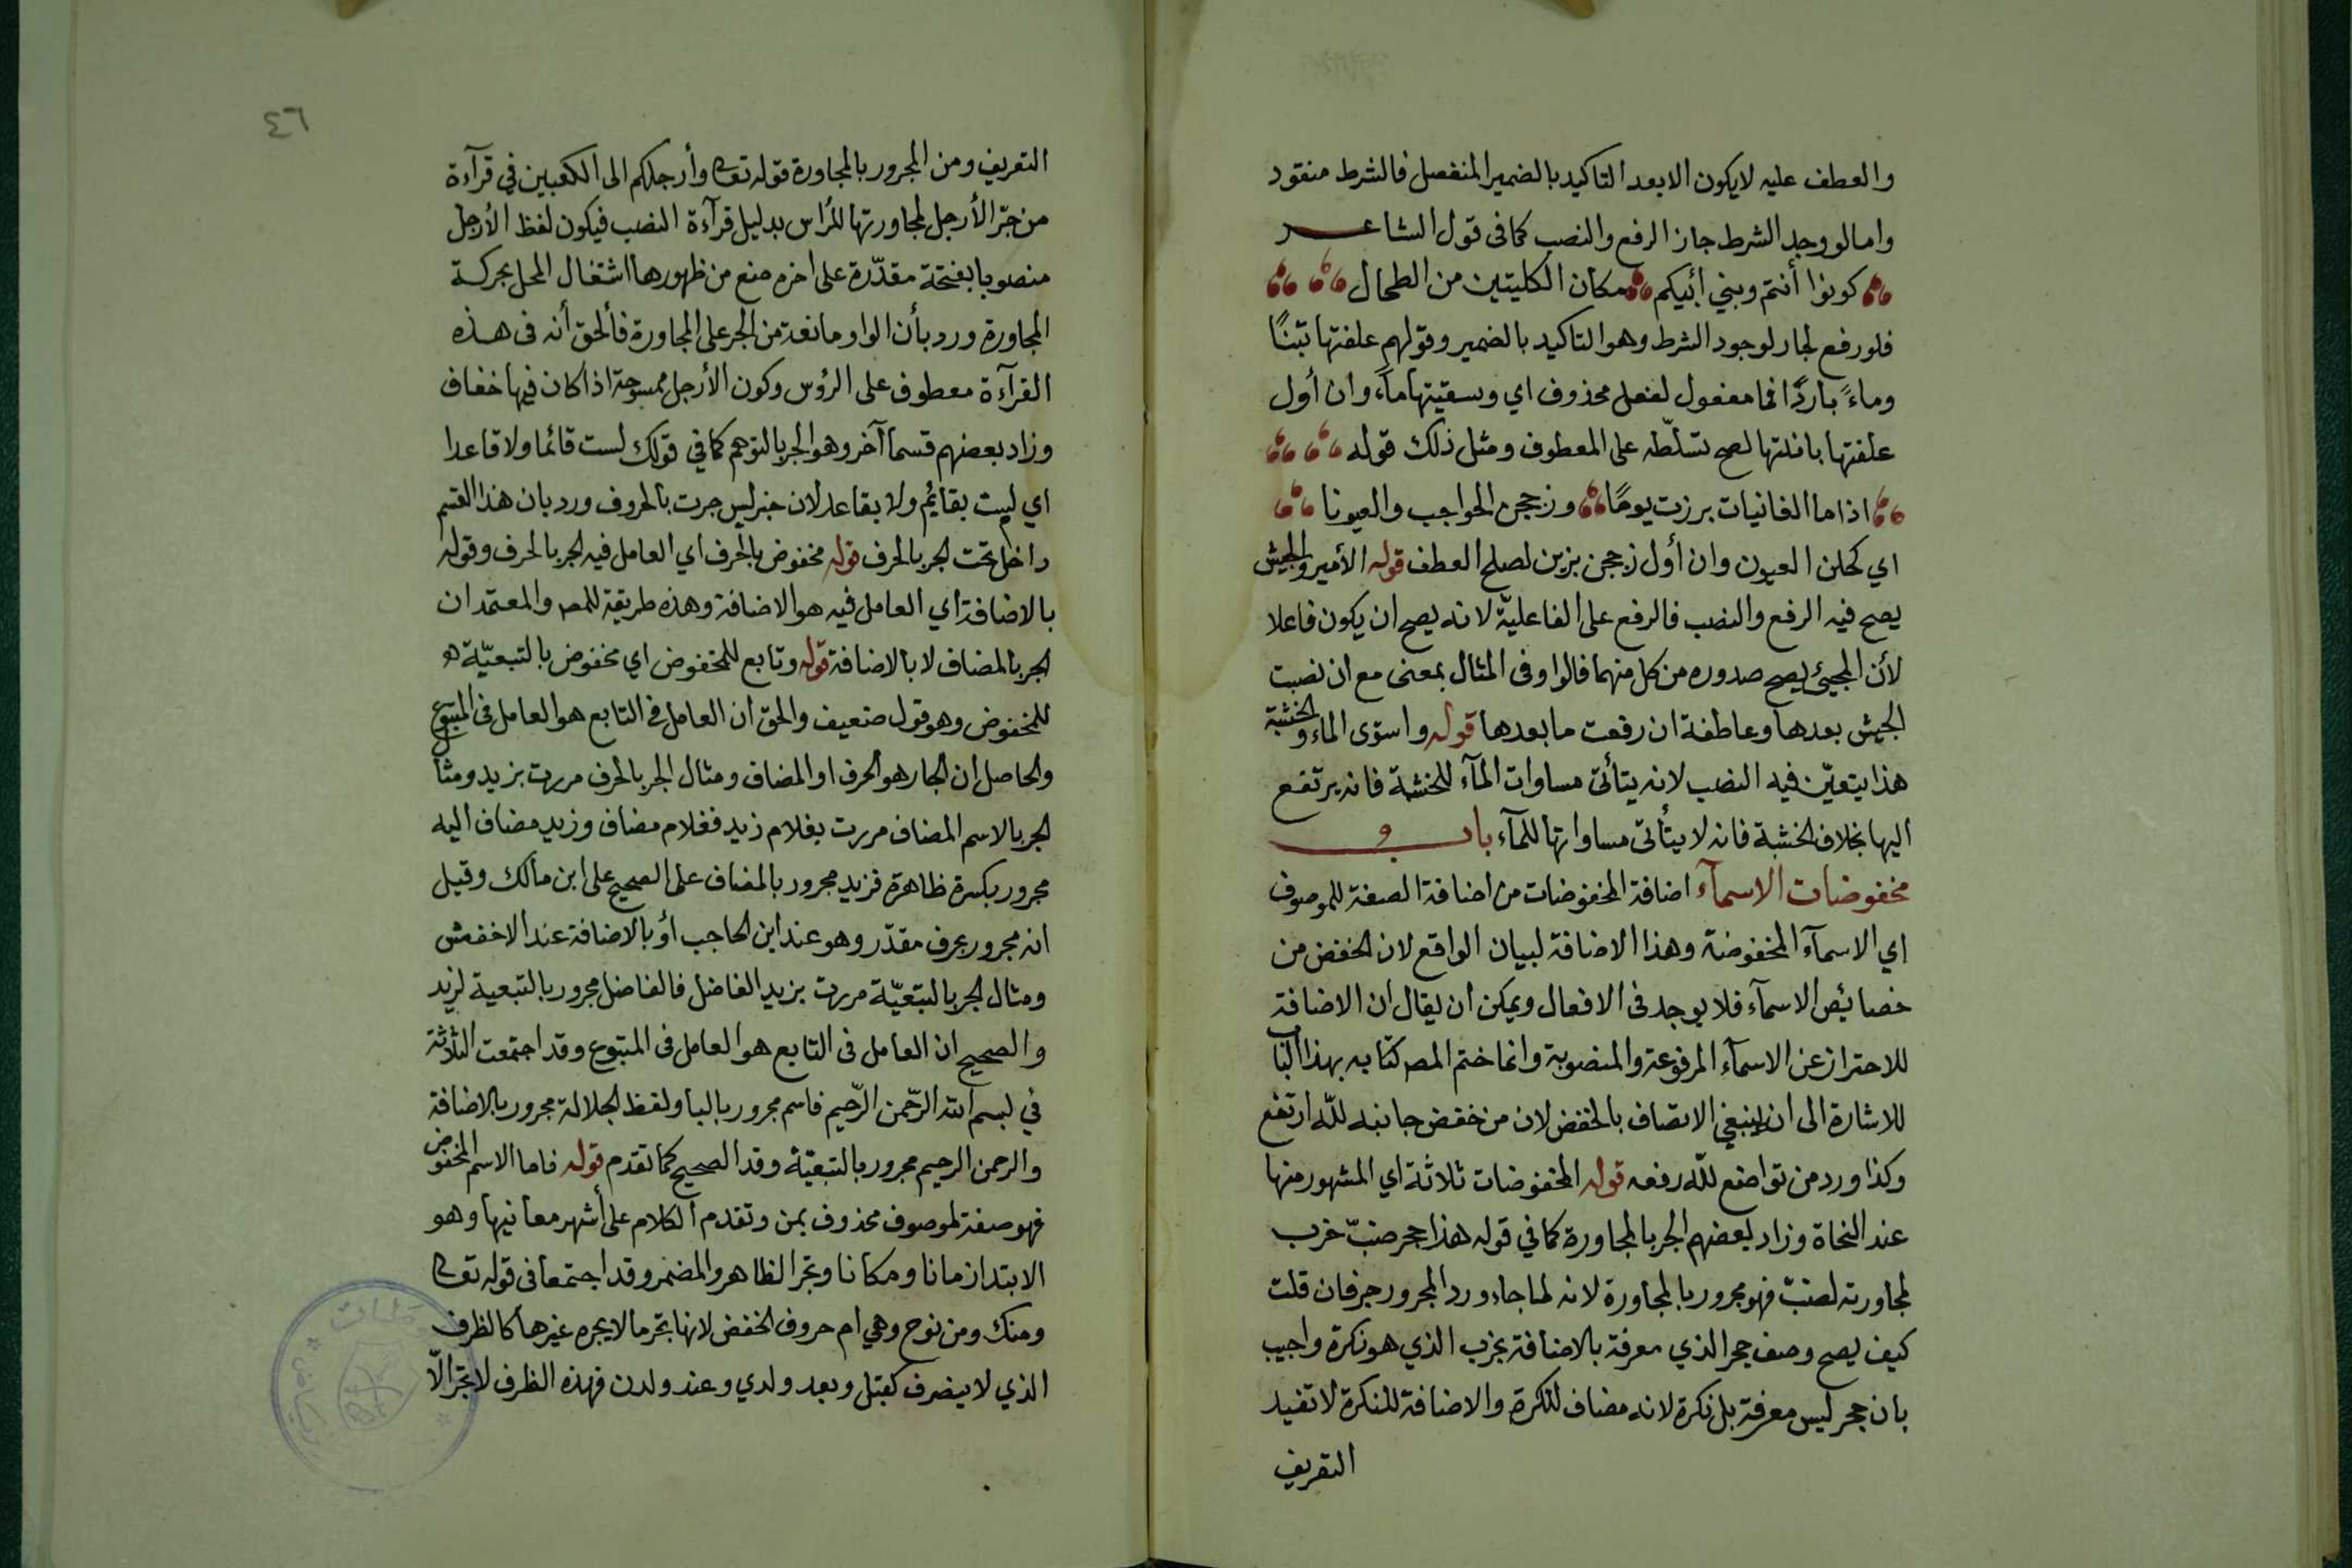 والعطف عليه لايكون الابعد التاكيد بالضمير المنفصل فالشرط منقود
وامالو وجد الشرط جاز الرفع والنصب كما فى قول الشاعر
كونوا أنتم وبني أبيكم مكان الكليتين من الطحال
فلو رفع لجاز لوجود الشرط وهو التاكيد بالضمير وقولهم علفتها تبنًا
وماءً باردًا فما مفعول لفعل محذوف اي وسقيتها ماءً وان أول
علفتها بانلتها لصح تسلّطه على المعطوف ومثل ذلك قوله
اذا ما الغانيات برزت يومًا وزججن الحواجب والعيونا
اي كحلن العيون وان أول زججن بزين لصلح العطف قوله الأمير والجيش
يصح فيه الرفع والنصب فالرفع على الفاعليّة لانه يصح ان يكون فاعلا
لأن المجيئ يصح صدوره من كل منهما فالواو فى المثال بمعنى مع ان نصبت
الجيش بعدها وعاطفة ان رفعت ما بعدها قوله واستوى الماء والخشبة
هذا يتعيّن فيه النصب لانه يتأتى مساوات المآء للخشبة فانه يرتفع
اليها بخلاف الخشبة فانه لا يتأتى مساواتها للمآء باب
مخفوضات الاسمآء اضافة المخفوضات من اضافة الصفة للموصوف
اي الاسمآء المخفوضة وهذا الاضافة لبيان الواقع لان الخفض من
خصائص الاسمآء فلا يوجد فى الافعال ويمكن ان يقال ان الاضافة
للاحتراز عن الاسمآء المرفوعة والمنصوبة وانما ختم المصـ كتابه بهذا الباب
للاشارة الى ان ينبغي الاتصاف بالخفض لان من خفض جانبه للّه ارتفع
وكذا ورد من تواضع للّه رفعه قوله المخفوضات ثلاثة اي المشهور منها
عند النحاة وزاد بعضهم الجر بالمجاورة كما في قوله هذا جحر ضبّ خرب
لمجاورته لضبّ فهو مجرور بالمجاورة لانه لما جاور المجرور جر فان قلت
كيف يصح وصف جحر الذي معرفة بالاضافة بخرب الذي هو نكرة واجيب
بان جحر ليس معرفة بل نكرة لانه مضاف للنكرة والاضافة للنكرة لا تفيد
التعريف
٤٦
التعريف ومن المجرور بالمجاورة قوله تعا وأرجلكم الى الكعبين في قرآءة
من جرّ الأرجل لمجاورتها للرأس بدليل قرآءة النصب فيكون لفظ الأرجل
منصوبا بفتحة مقدّرة على اخره منع من ظهورها اشتغال المحل بحركة
المجاورة ورد بأن الواو مانعة من الجر على المجاورة فالحق أنه فى هذه
القرآءة معطوف على الرؤس وكون الأرجل ممسوحة اذا كان فيها خفاف
وزاد بعضهم قسما آخر وهو الجر بالتوهم كما في قولك لست قائما ولا قاعدا
اي ليست بقايئم ولا بقاعد لان خبر ليس جرت بالحروف ورد بان هذا القسم
داخل تحت الجر بالحرف قوله مخفوض بالحرف اي العامل فيه الجر بالحرف وقوله
بالاضافة اي العامل فيه هو الاضافة وهذه طريقة للمصـ والمعتمد ان
الجر بالمضاف لا بالاضافة قوله وتابع للمخفوض اي مخفوض بالتبعيّة
للمخفوض وهو قول ضعيف والحق ان العامل في التابع هو العامل فى المتبوع
والحاصل ان الجار هو الحرف او المضاف ومثال الجر بالحرف مررت بزيد ومثال
الجر بالاسم المضاف مررت بغلام زيد فغلام مضاف وزيد مضاف اليه
مجرور بكسرة ظاهرة فزيد مجرور بالمضاف على الصحيح على ابن مالك وقيل
انه مجرور بحرف مقدّر وهو عند ابن الحاجب أو بالاضافة عند الاخفش
ومثال الجر بالتبعيّة مررت بزيد الفاضل فالفاضل مجرور بالتبعية لزيد
والصحيح ان العامل فى التابع هو العامل فى المتبوع وقد اجتمعت الثلاثة
في بسم الله الرّحمن الرّحيم فاسم مجرور بالبا ولفظ الجلالة مجرور بالاضافة
والرحمن الرحيم مجرور بالتبعيّة وقد الصحيح كما تقدم قوله فاما الاسم المخفوض
فهو صفة لموصوف محذوف بمن وتقدم الكلام على أشهر معانيها وهو
الابتدا زمانا ومكانا وتجر الظاهر والمضمر وقد اجتمعا فى قوله تعا
ومنك ومن نوح وهي ام حروف الخفض لانها تجر ما لا يجره غيرها كالظرف
الذي لا ينصرف كقبل وبعد ولدي وعند ولدن فهذه الظرف لا تجرّ الّا